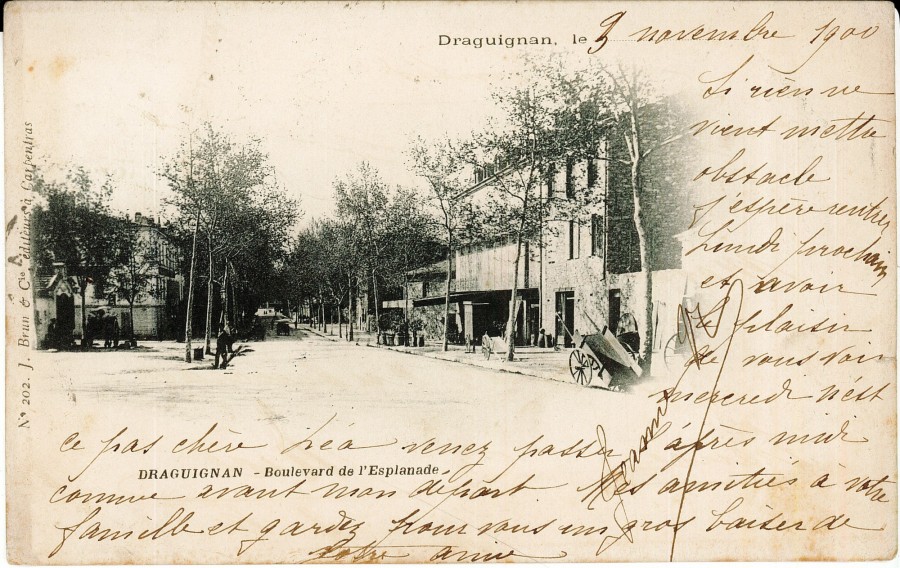 Draguignan, le 9 novembre 1900
Si rien ne
vient mettre
obstacle
j'espère rentrer
Lundi prochain
et avoir
le plaisir
de vous voir
mercredi n'est
ce pas chère Léa venez passer l'après midi
comme avant mon départ Mes amitiés à votre
famille et gardez pour vous un gros baiser de
votre amie
DRAGUIGNAN - Boulevard de l'Esplanade
No 202. J. Brun & Cie éditeurs à Carpentras